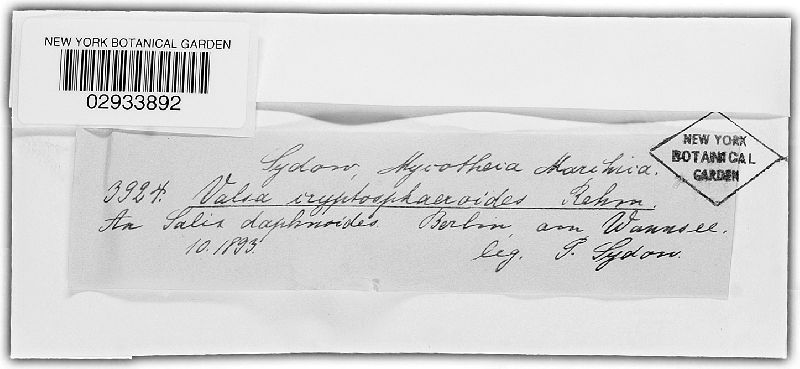 NEW YORK BOTANICAL GARDEN
02933892
NEW YORK
BOTANICAL
GARDEN
Sydow, Mycotheca Marchica.
3924. Valsa cryptosphaeroides Rehm.
An Salix daphnoides. Berlin, am Wannsee.
10.1893. leg. P. Sydow.